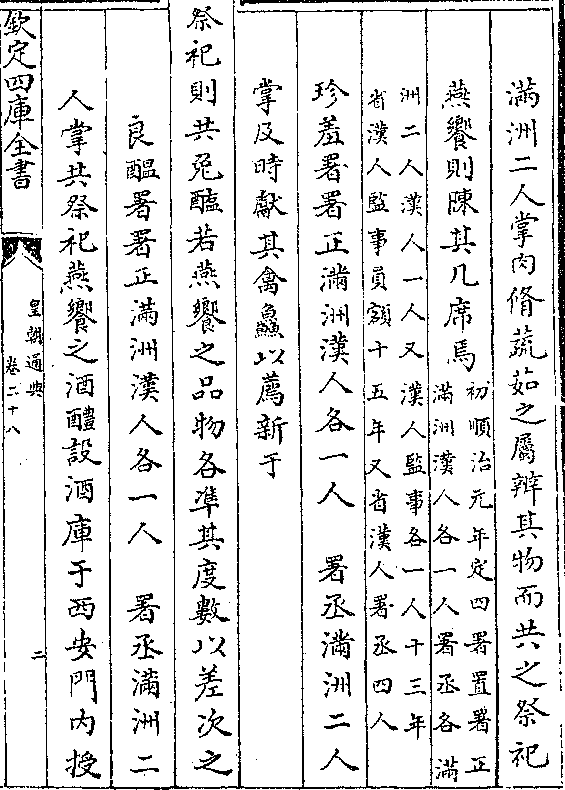 滿洲二人掌肉脩蔬茹之屬辨其物而共之祭祀
燕饗則陳其几席焉
初順治元年定四署置署正
滿洲漢人各一人署丞各滿
洲二人漢人一人又漢人監事各一人十三年
省漢人監事員額十五年又省漢人署丞四人
珍羞署署正滿洲漢人各一人　署丞滿洲二人
掌及時獻其禽鱻以薦新于
祭祀則共兔醢若燕饗之品物各準其度數以差次之
良醞署署正滿洲漢人各一人　署丞滿洲二
人掌共祭祀燕饗之酒醴設酒庫于西安門内授
欽定四庫全書
皇朝通典
卷二十八
二